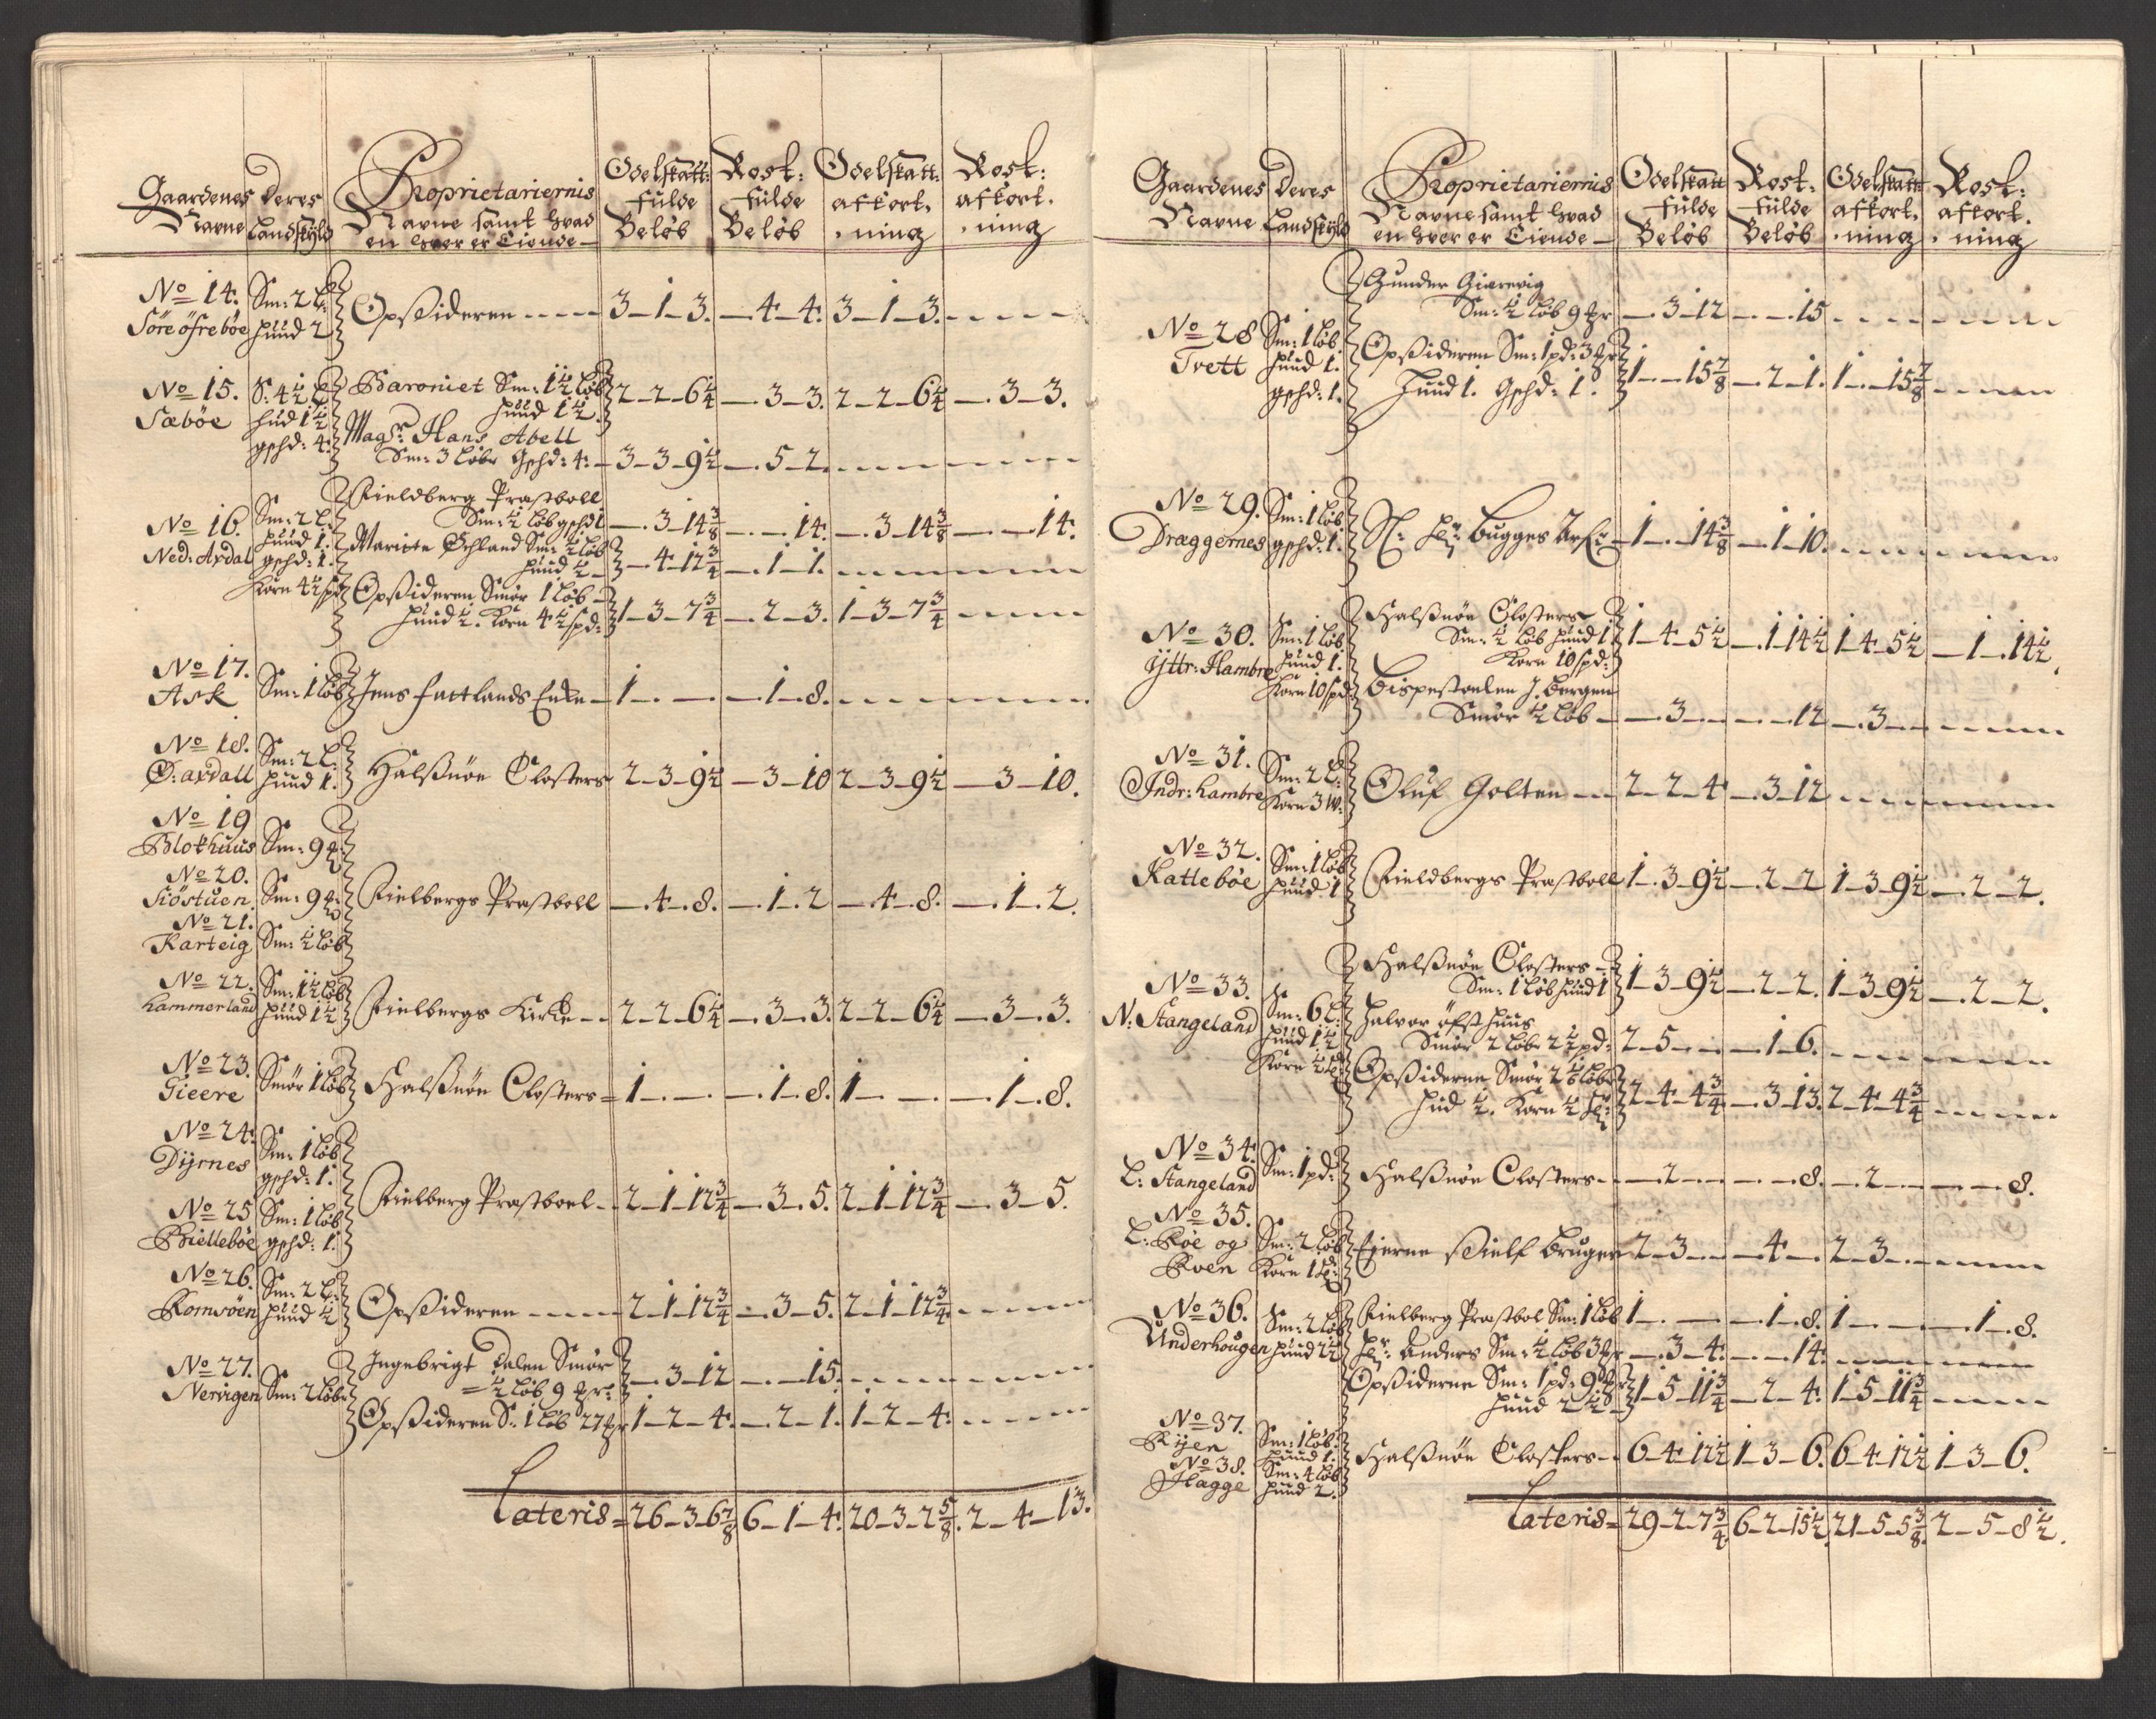 Gaardenes Navne
Deres Landskyld
Proprietariernis Navne samt hvad en hver er Eiende
Odelskatt: fulde Beløb
Rost: fulde Beløb
Odelskatt: afkort. ning
Rost: afkort. ning
No 14. Sm: 2 L:
Söre öfrebøe hund 2 Opsideren 3-1-3. -4-4. 3-1-3.
No 15. S: 4½ L: Baroniet Sm: 1½ løb 2-2-6¼ -3-3. 2-2-6¼ -3-3.
Sæbøe hud 1½ hund 1½
gshd: 4. Magr Hans Abell
Sm: 3 løbr gshd: 4. 3-3-9½ -5-2.
Fieldberg Præstboll
No 16. Sm: 2 L: Sm: ½ løb gshd 1 -3-14⅜ -14. -3-14⅜ -14.
Ned: Axdal hund 1. Marite Øhland Sm: ½ løb
gshd: 1. hund ½ -4-12¾ -1-1.
Korn 4½ spd Opsideren Smør 1 løb
hund ½. Korn 4½ spd: 1-3-7¾ -2-3. 1-3-7¾
No 17.
Ask Sm: 1 løb Jens fattlands Enke 1 -1-8.
No 18. Sm: 2 L.
Ø: axdall hund 1. Halsnøe Closters 2-3-9½ -3-10 2-3-9½ -3-10.
No 19
Blokhuus Sm: 9
No 20.
Siöstuen Sm: 9 Fielbergs Præstboll -4-8. -1-2 -4-8. -1-2.
No 21.
Karteig Sm: ½ løb
No 22. Sm: 1½ løb
hammerland hund 1½ Fielbergs Kirke 2-2-6¼ -3-3. 2-2-6¼ -3-3.
No 23.
Gieere Smør 1 løb Halsnøe Closters 1 -1-8. 1 -1-8.
No 24.
Dijrnes Sm: 1 løb
gshd: 1.
Fielberg Præstboel 2-1-12¾ -3-5. 2-1-12¾ -3-5.
No 25 Sm: 1 løb
Biellebøe gshd: 1.
No 26. Sm: 2 L:
Romsöen hund ½ Opsideren 2-1-12¾ -3-5. 2-1-12¾
No 27. Ingebrigt Dalen Smør
Nervigen Sm: 2 løbr ½ løb 9 -3-12 -15.
Opsideren S: 1 løb 27 1-2-4. -2-1. 1-2-4.
Lateris 26-3-6⅞ 6-1-4. 20-3-2⅝. 2-4-13.
Gaardenes Navne
Deres Landskyld
Proprietariernis Navne samt hvad en hver er Eiende
Odelskatt fulde Beløb
Rost: fulde Beløb
Odelskatt afkort. ning
Rost: afkort. ning
Gunder Gierevig
Sm: ½ løb 9 -3-12 -15
No 28 Sm: 1 løb
Tvett hund 1. Opsideren Sm: 1 pd: 3
gshd: 1. hund 1. gshd: 1. 1-15⅞ -2-1. 1-15⅞
No 29. Sm: 1 løb
Dræggernes gshd: 1. Bugges 1-14⅜ -1-10.
No 30. Sm: 1 løb Halsnøe Closters
ijttr: Hambre hund 1. Sm: ½ løb hund 1. 1-4-5½ -1-14½ 1-4-5½ -1-14½.
Korn 10 spd: Korn 10 spd:
Bispestoelen J. Bergen
Smør ½ løb -3 -12 -3
No 31. Sm: 2 L:
Indr: hambre Korn 3 w: Oluf Golten 2-2-4 -3-12
No 32. Sm: 1 løb
Kattebøe hund 1 Fieldbergs Præstboll 1-3-9½ -2-2 1-3-9½ -2-2.
Halsnøe Closters
No 33. Sm: 1 løb hund 1 1-3-9½ -2-2. 1-3-9½ -2-2.
N: Stangeland Sm: 6 L: Halvor öfsthuus
hund 1½ Smør 2 løbr 2½ pd: 2-5 -1-6.
Korn ½ Opsiderne Smør løbr
hud ½. Korn ½ 2-4-4¾ -3-13. 2-4-4¾
No 34.
L: Stangeland Sm: 1 pd: Halsnøe Closters -2 -8. -2 -8.
No 35.
L: Røe og Sm: 2 løb Eierne Sielf Bruger 2-3 -4 2-3
Kven Korn 1
No 36. Sm: 2 løb Fielberg Præstbol Sm: 1 løb 1 -1-8. 1 -1-8.
Underhougen hund 2½ Anders Sm: ½ løb 3 -3-4. -14.
Opsiderne Sm: 1 pd: 9
hund 2½ 1-5-11¾ -2-4. 1-5-11¾
No 37.
Rijen Sm: 1 løb.
hund 1. Halsnøe Closters 6-4-12½ 1-3-6. 6-4-12½ 1-3-6.
No 38. Sm: 4 løb
Hagge hund 2.
Lateris 29-2-7¾ 6-2-15½ 21-5-5⅜. 2-5-8½.